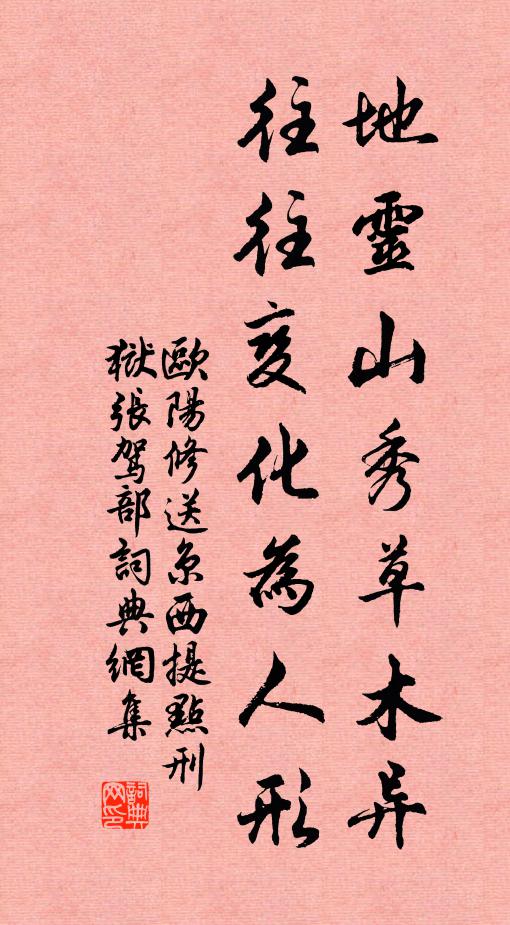 地靈山秀草木异
往往变化為人形
歐陽修送京西提點刑
獄張駕部詞典網集
詞典网印